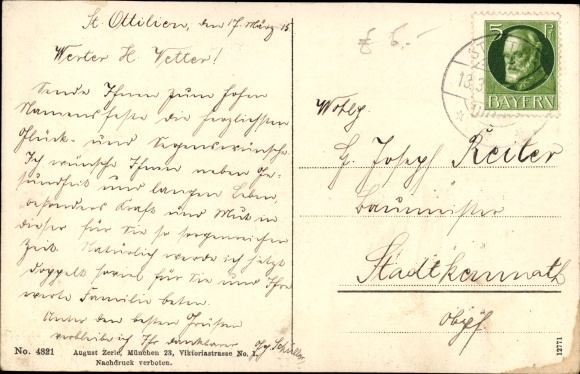 St. Ottilien, den 17. März 15
Werter H. Vetter!
Sende Ihnen zum hohen
Namensfeste die herzlichsten
Glück- und Segenswünsche.
Ich wünsche Ihnen neben Ge-
sundheit und langem Leben,
besonders Kraft und Mut in
dieser für Sie so sorgenreichen
Zeit. Natürlich werde ich jetzt
doppelt soviel für Sie und Ihre
werte Familie beten.
Unter den besten Grüßen
verbleibe ich Ihr dankbarer
No. 4821
August Zerle, München 23, Viktoriastrasse No. 1.
Nachdruck verboten.
£ 6.-
5 Pf
BAYERN
Wohlg.
H. Josef Reiter
Baumeister
Stadtkemnath
Obpf.
12771